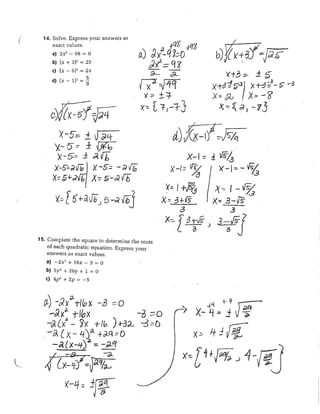 14. Solve. Express your answers as
exact values.
a) 2x² − 98 = 0
b) (x + 3)² = 25
c) (x − 5)² = 24
d) (x − 1)² = 5/9
a) 2x²-98=0 +98 +98
2x² = 98
2 2
√x² = √49
x = ±7
x = {7, -7}
b) √(x+3)² = √25
x+3 = ± 5
x+3=5-3 | x+3=-5-3
x=2 | x=-8
x={2, -8}
c) √(x-5)² = √24
x-5 = ± √24
x-5 = ± √4·6
x-5 = ± 2√6
x-5=2√6 | x-5=-2√6
x=5+2√6 | x=5-2√6
x={5+2√6, 5-2√6}
d) √(x-1)² = √5/9
x-1 = ± √5/3
x-1=√5/3 | x-1=-√5/3
x=1+√5/3 | x=1-√5/3
x=3+√5/3 | x=3-√5/3
x={3+√5/3, 3-√5/3}
15. Complete the square to determine the roots
of each quadratic equation. Express your
answers as exact values.
a) −2x² + 16x − 3 = 0
b) 5y² + 20y + 1 = 0
c) 4p² + 2p = −5
a) -2x²+16x -3 =0
-2x² +16x -3 =0
-2(x² - 8x +16 )+32 -3=0
-2(x-4)² +29=0
-2(x-4)² = -29
-2 -2
√(x-4)² = √29/2
x-4 = ±√29/√2
+4 +4
x-4 = ± √29/2
x = 4 ± √29/2
x={4+√29/2, 4-√29/2}